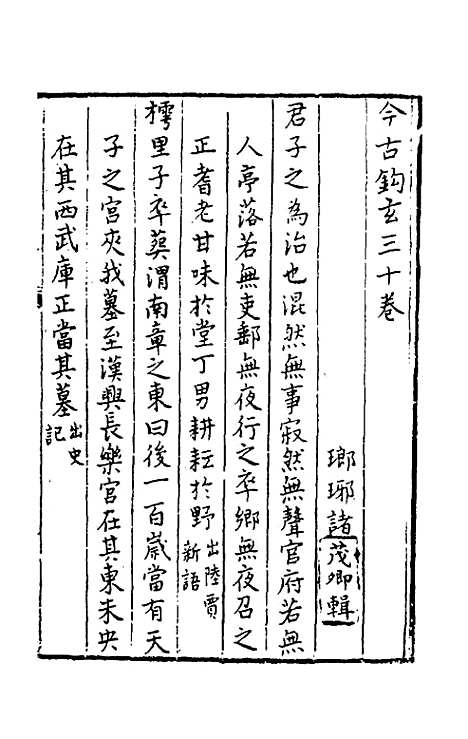 今古鈎玄三十卷
瑯琊諸茂卿輯
君子之為治也混然無事寂然無聲官府若無
人亭落若無吏郵無夜行之卒鄉無夜召之
正耆老甘味於堂丁男耕耘於野出陸賈新語
樗里子卒葬渭南章之東曰後一百歲當有天
子之宮夾我墓至漢興長樂宮在其東未央
在其西武庫正當其墓出史記